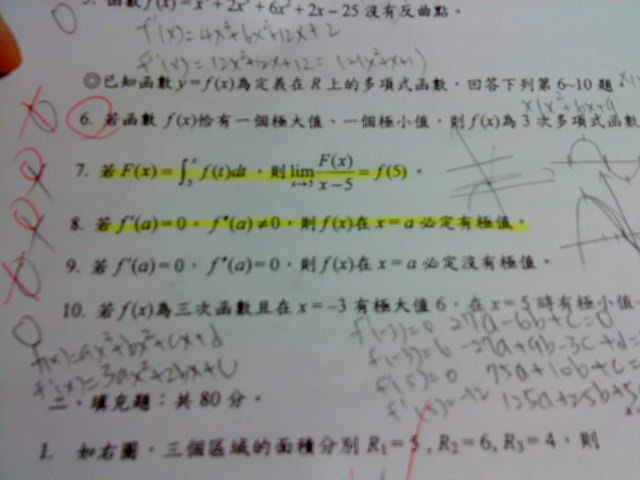 5. 函數 f(x) = x⁴ + 2x³ + 6x² + 2x − 25 沒有反曲點。
f'(x) = 4x³ + 6x² + 12x + 2
f''(x) = 12x² + 12x + 12 = 12(x² + x + 1)
◎已知函數 y = f(x) 為定義在 R 上的多項式函數，回答下列第 6~10 題
6. 若函數 f(x) 恰有一個極大值、一個極小值，則 f(x) 為 3 次多項式函數
7. 若 F(x) = ∫₅ˣ f(t)dt，則 lim x→5 F(x)/(x−5) = f(5)。
8. 若 f'(a) = 0，f''(a) ≠ 0，則 f(x) 在 x = a 必定有極值。
9. 若 f'(a) = 0，f''(a) = 0，則 f(x) 在 x = a 必定沒有極值。
10. 若 f(x) 為三次函數且在 x = −3 有極大值 6，在 x = 5 時有極小值
f(x) = ax³ + bx² + cx + d
f'(x) = 3ax² + 2bx + c
f'(-3) = 0 27a − 6b + c = 0
f(-3) = 6 −27a + 9b − 3c + d =
f'(5) = 0 75a + 10b + c =
125a + 25b + 5
二、填充題：共 80 分。
1. 如右圖，三個區域的面積分別 R₁ = 5, R₂ = 6, R₃ = 4，則